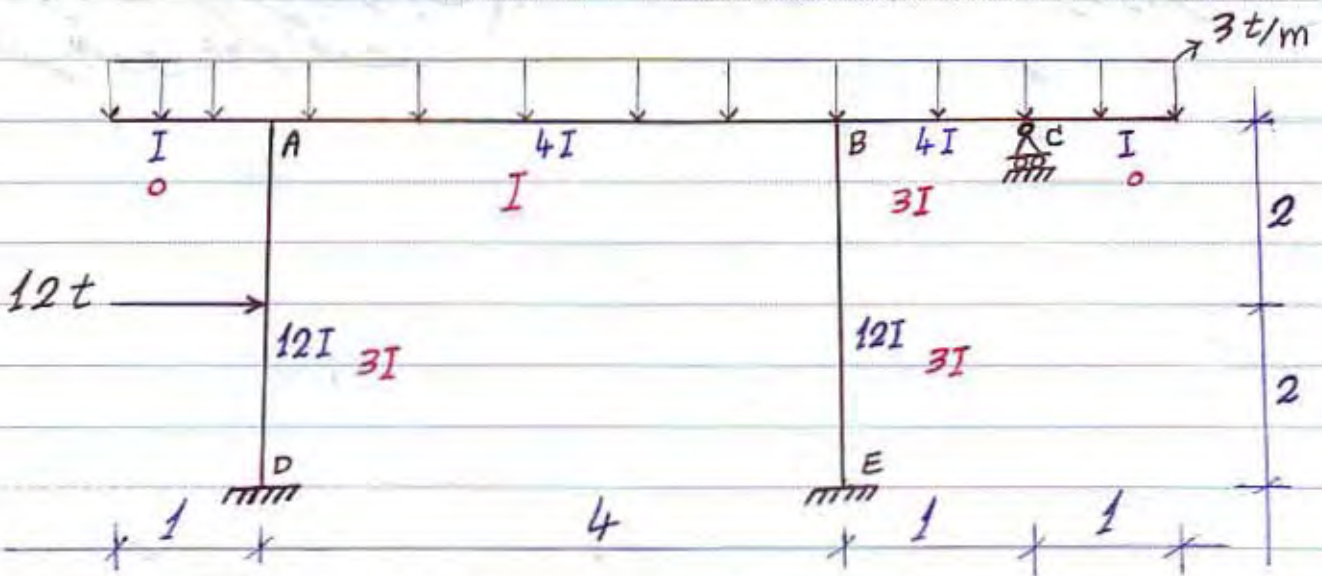 3 t/m
I A 4I B 4I C I
0 I 3I 0
2
12 t
12I 3I 12I 3I
2
D E
1 4 1 1